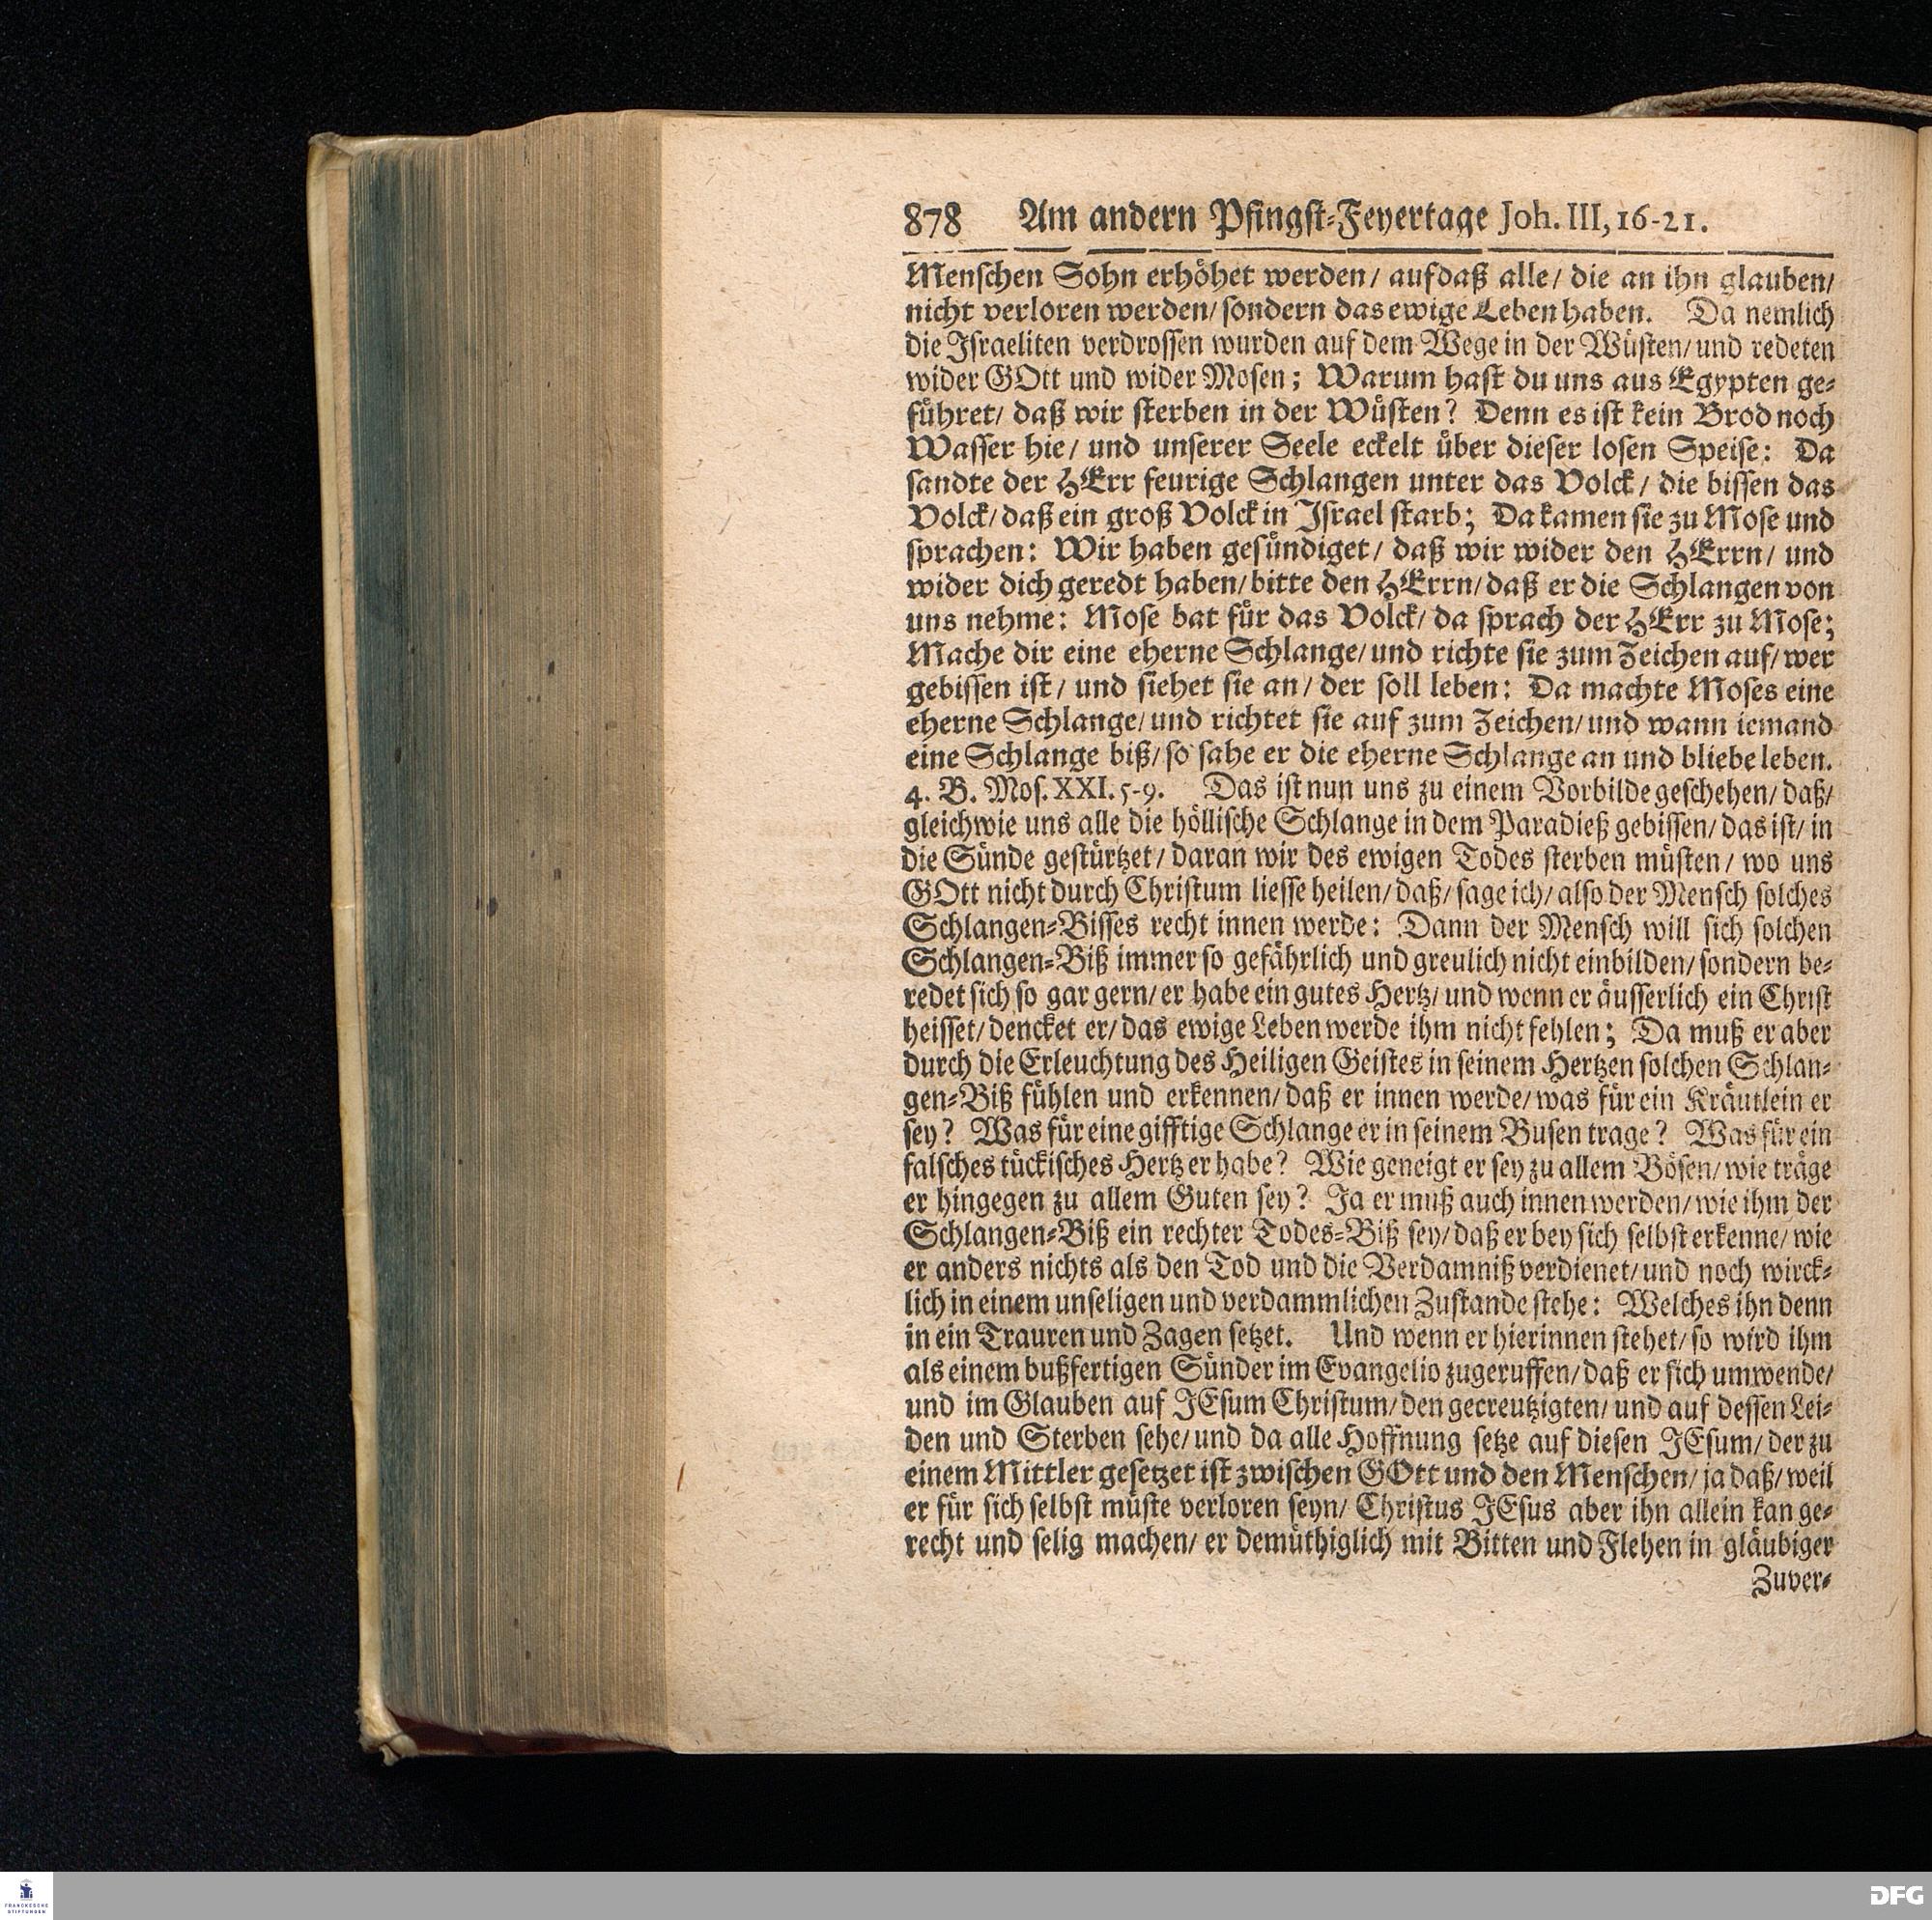 878 Am andern Pfingst-Feyertage Joh. III, 16-21.
Menschen Sohn erhöhet werden/ aufdaß alle/ die an ihn glauben/
nicht verloren werden/ sondern das ewige Leben haben. Da nemlich
die Israeliten verdrossen wurden auf dem Wege in der Wüsten/ und redeten
wider GOtt und wider Mosen; Warum hast du uns aus Egypten ge-
führet/ daß wir sterben in der Wüsten? Denn es ist kein Brod noch
Wasser hie/ und unserer Seele eckelt über dieser losen Speise: Da
sandte der HErr feurige Schlangen unter das Volck/ die bissen das
Volck/ daß ein groß Volck in Israel starb; Da kamen sie zu Mose und
sprachen: Wir haben gesündiget/ daß wir wider den HErrn/ und
wider dich geredt haben/ bitte den HErrn/ daß er die Schlangen von
uns nehme: Mose bat für das Volck/ da sprach der HErr zu Mose;
Mache dir eine eherne Schlange/ und richte sie zum Zeichen auf/ wer
gebissen ist/ und siehet sie an/ der soll leben: Da machte Moses eine
eherne Schlange/ und richtet sie auf zum Zeichen/ und wann iemand
eine Schlange biß/ so sahe er die eherne Schlange an und bliebe leben.
4. B. Mos. XXI. 5-9. Das ist nun uns zu einem Vorbilde geschehen/ daß/
gleichwie uns alle die höllische Schlange in dem Paradieß gebissen/ das ist/ in
die Sünde gestürtzet/ daran wir des ewigen Todes sterben müsten/ wo uns
GOtt nicht durch Christum liesse heilen/ daß/ sage ich/ also der Mensch solches
Schlangen-Bisses recht innen werde: Dann der Mensch will sich solchen
Schlangen-Biß immer so gefährlich und greulich nicht einbilden/ sondern be-
redet sich so gar gern/ er habe ein gutes Hertz/ und wenn er äusserlich ein Christ
heisset/ dencket er/ das ewige Leben werde ihm nicht fehlen; Da muß er aber
durch die Erleuchtung des Heiligen Geistes in seinem Hertzen solchen Schlan-
gen-Biß fühlen und erkennen/ daß er innen werde/ was für ein Kräutlein er
sey? Was für eine gifftige Schlange er in seinem Busen trage? Was für ein
falsches tückisches Hertz er habe? Wie geneigt er sey zu allem Bösen/ wie träge
er hingegen zu allem Guten sey? Ja er muß auch innen werden/ wie ihm der
Schlangen-Biß ein rechter Todes-Biß sey/ daß er bey sich selbst erkenne/ wie
er anders nichts als den Tod und die Verdamniß verdienet/ und noch wirck-
lich in einem unseligen und verdammlichen Zustande stehe: Welches ihn denn
in ein Trauren und Zagen setzet. Und wenn er hierinnen stehet/ so wird ihm
als einem bußfertigen Sünder im Evangelio zugeruffen/ daß er sich umwende/
und im Glauben auf JEsum Christum/ den gecreutzigten/ und auf dessen Lei-
den und Sterben sehe/ und da alle Hoffnung setze auf diesen JEsum/ der zu
einem Mittler gesetzet ist zwischen GOtt und den Menschen/ ja daß/ weil
er für sich selbst müste verloren seyn/ Christus JEsus aber ihn allein kan ge-
recht und selig machen/ er demüthiglich mit Bitten und Flehen in gläubiger
Zuver-
FRANCKESCHE
STIFTUNGEN
DFG